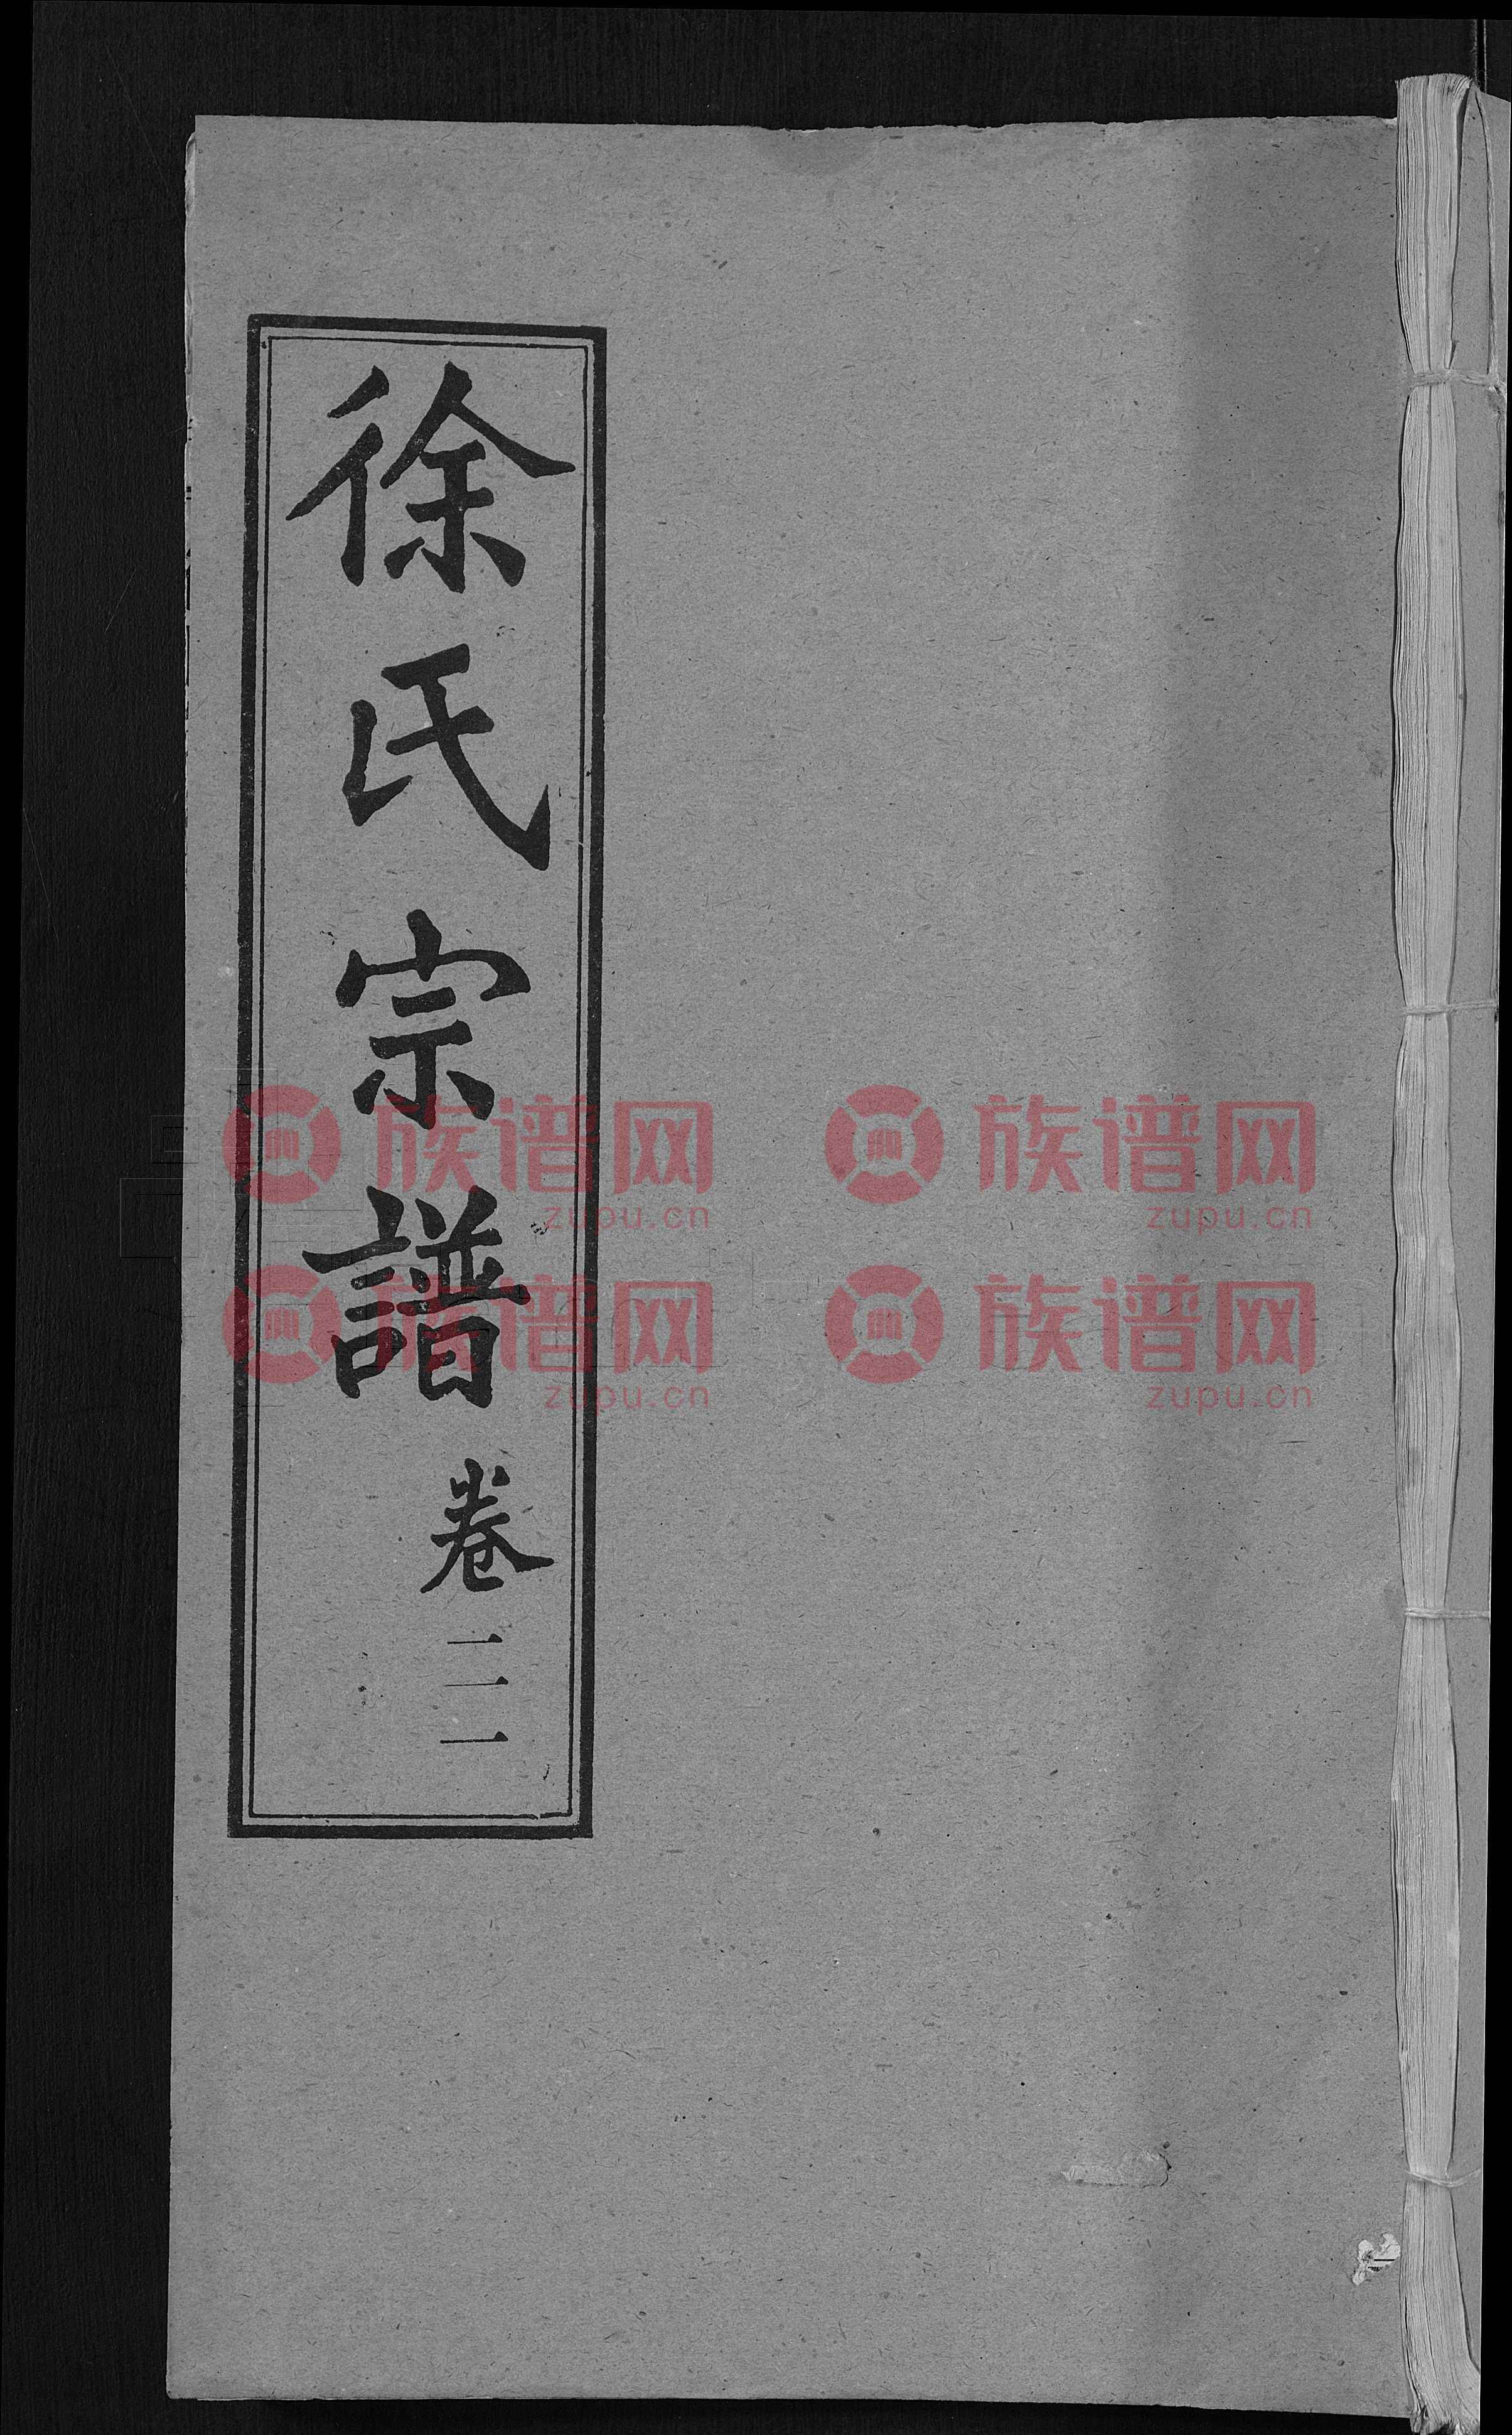 徐氏宗譜
卷三
族谱网 族谱网
zupu.cn zupu.cn
族谱网 族谱网
zupu.cn zupu.cn